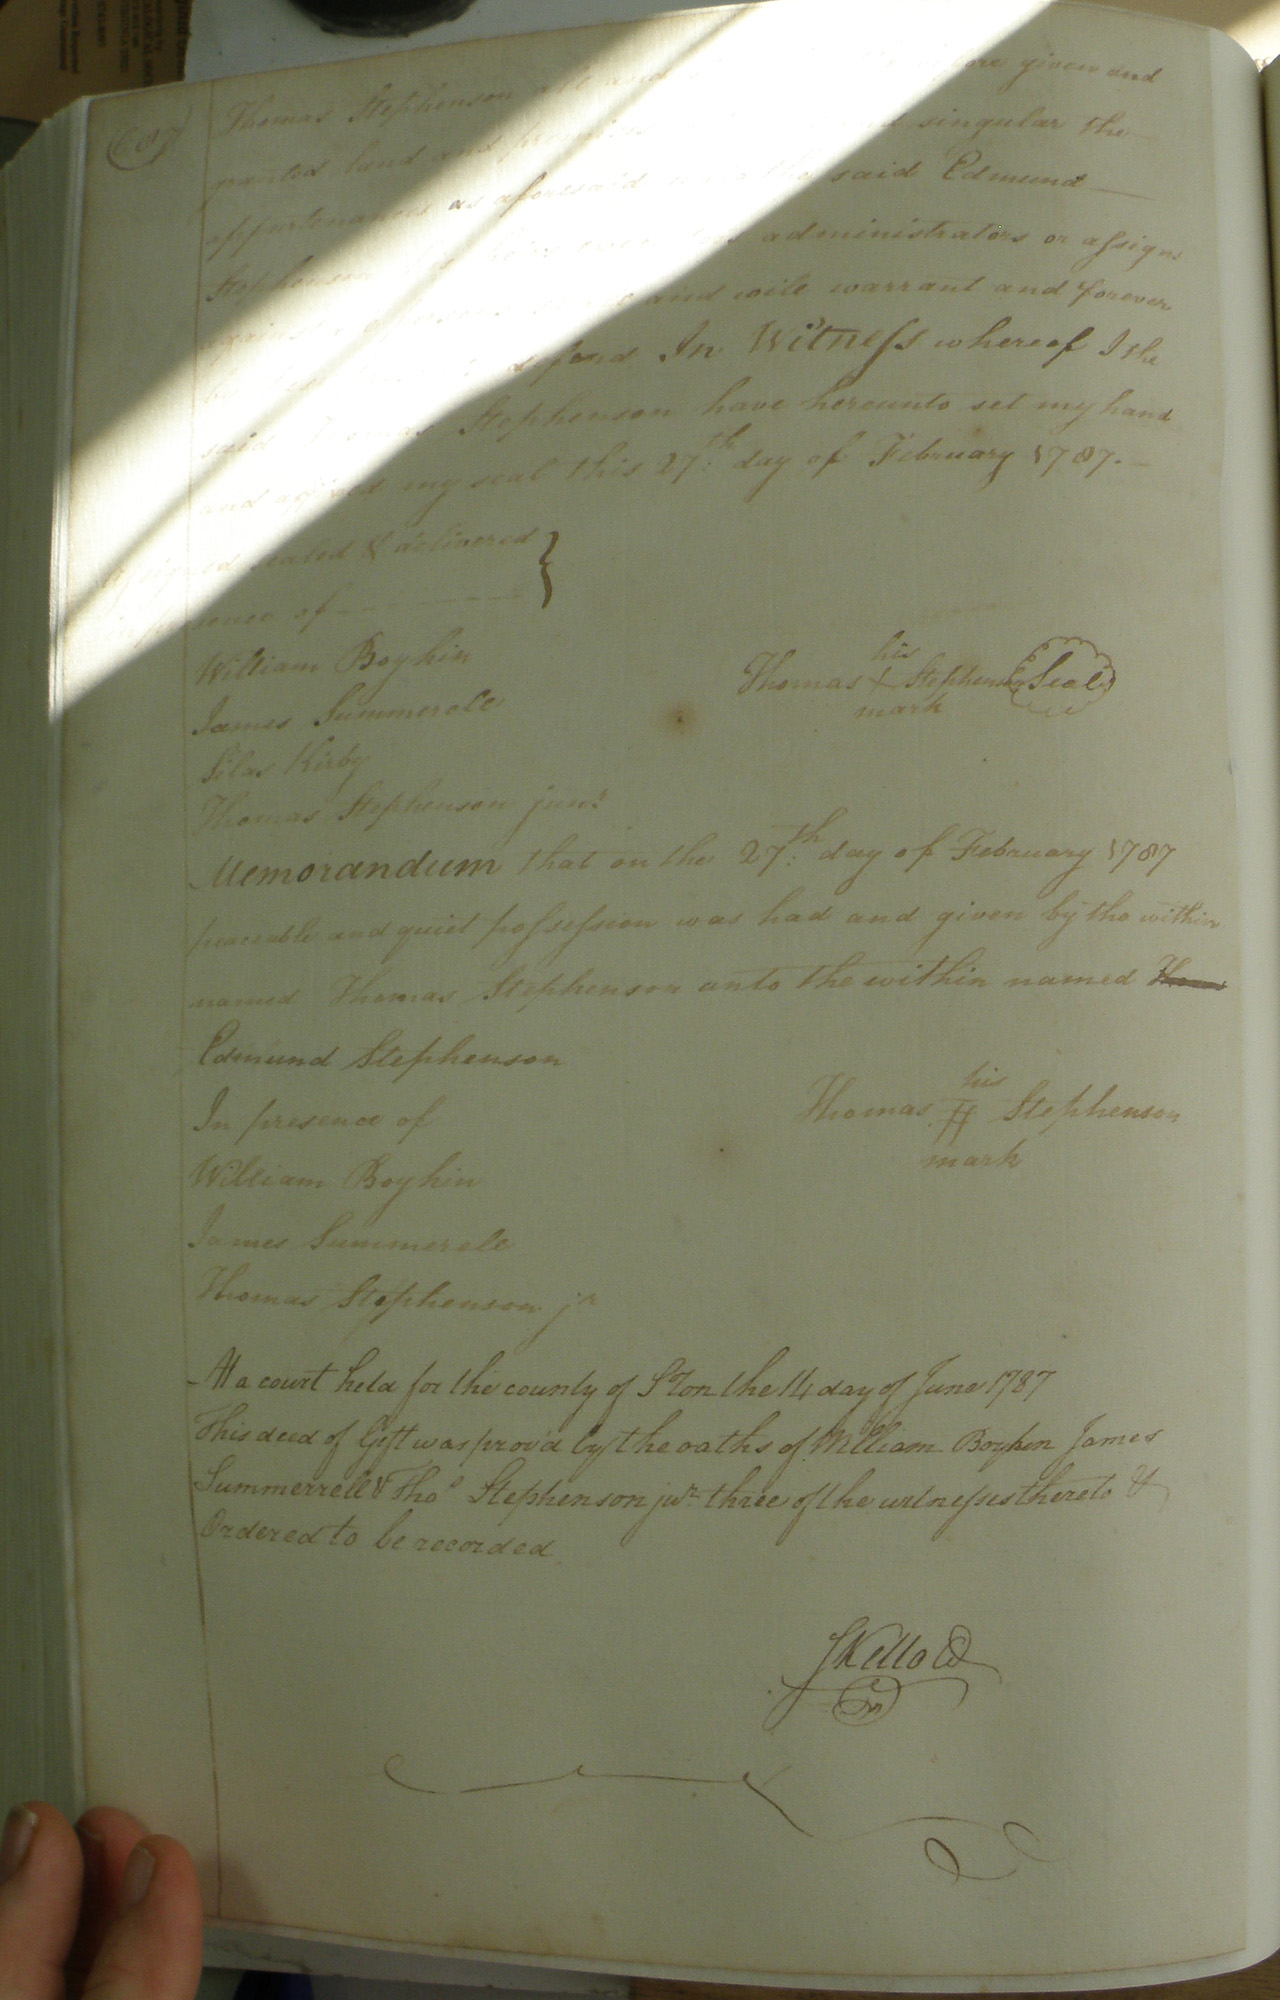 (687)
Thomas Stephenson all and given and
granted land and singular the
appurtenances as aforesaid the said Edmund
Stephenson administrators or assigns
against and will warrant and forever
defend. In Witness whereof I the
said Thomas Stephenson have hereunto set my hand
and my seal this 27.th day of February 1787.
sealed & delivered
of
William Boykin
his
Thomas + Stephenson Seal
mark
James Summerell
Silas Kirby
Thomas Stephenson junr
Memorandum that on the 27.th day of February 1787
peaceable and quiet possession was had and given by the within
named Thomas Stephenson unto the within named
Edmund Stephenson
In presence of
his
Thomas # Stephenson
mark
William Boykin
James Summerell
Thomas Stephenson jr
At a court held for the county of Ston the 14 day of June 1787
This deed of Gift was prov'd by the oaths of William Boykin James
Summerrell & Thos Stephenson junr three of the witnesses thereto &
Ordered to be recorded